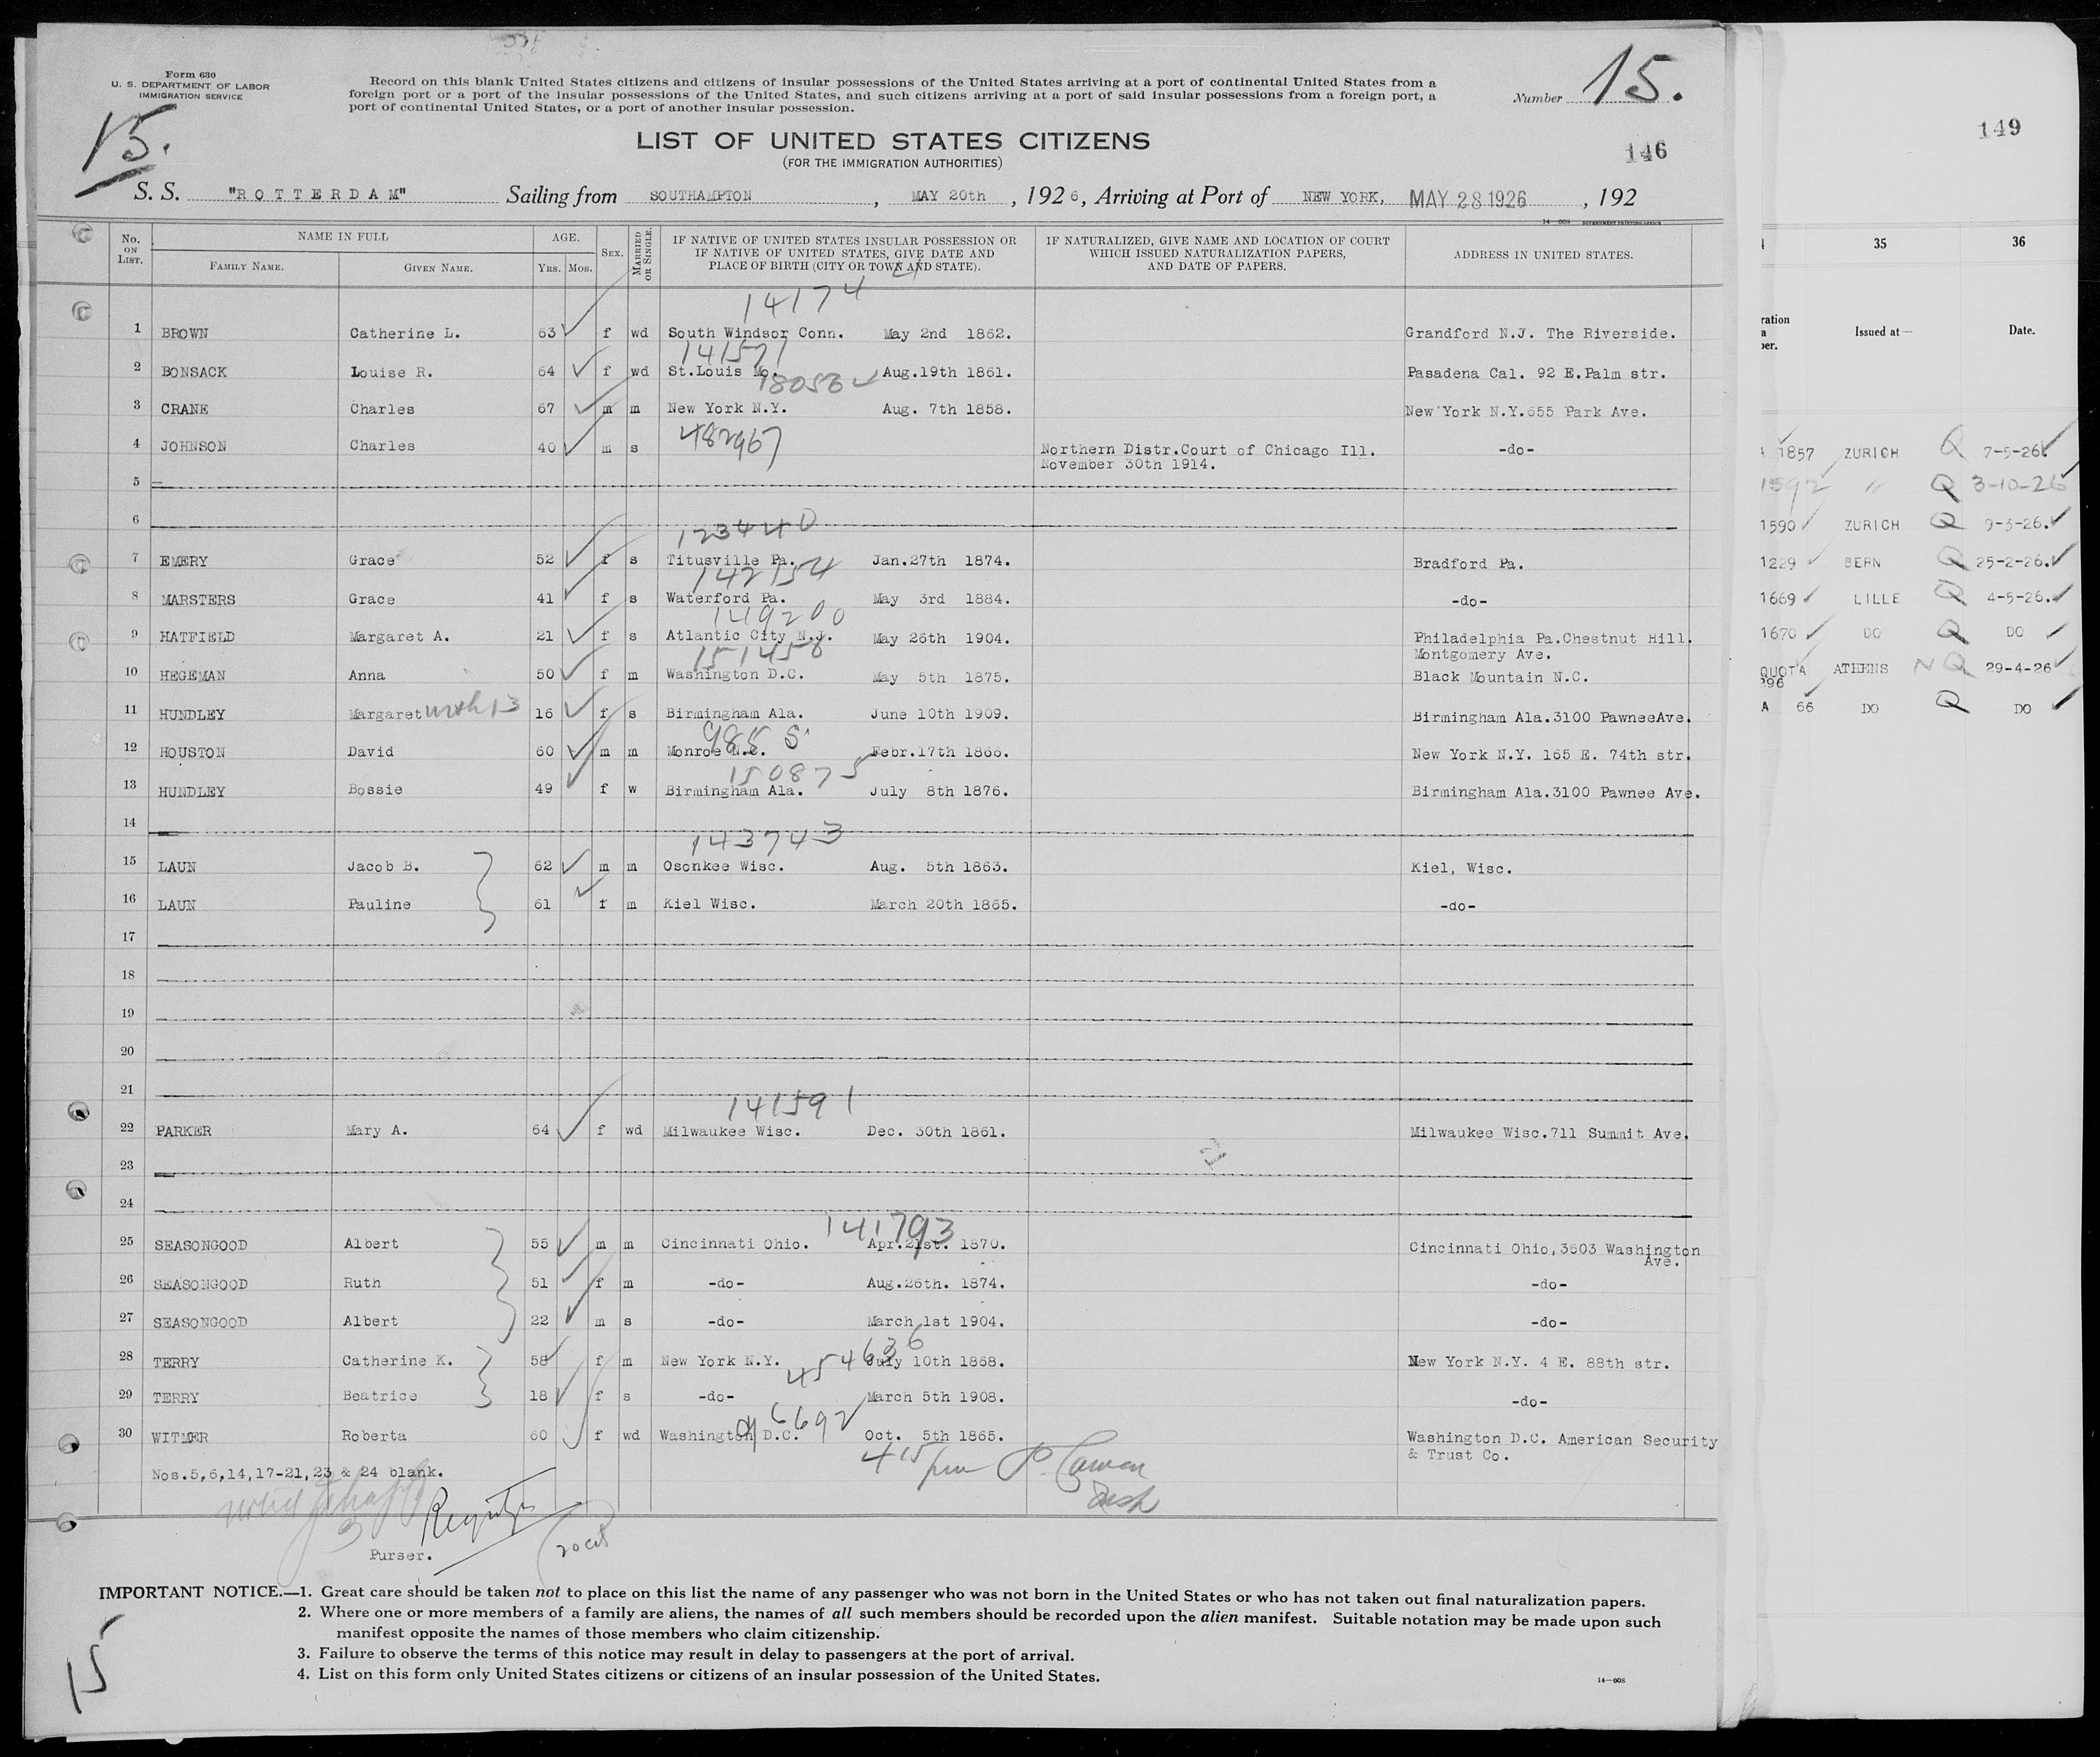 Form 630
U. S. DEPARTMENT OF LABOR
IMMIGRATION SERVICE
Record on this blank United States citizens and citizens of insular possessions of the United States arriving at a port of continental United States from a
foreign port or a port of the insular possessions of the United States, and such citizens arriving at a port of said insular possessions from a foreign port, a
port of continental United States, or a port of another insular possession.
Number 15.
15.
LIST OF UNITED STATES CITIZENS
(FOR THE IMMIGRATION AUTHORITIES)
146
149
S. S. "ROTTERDAM" Sailing from SOUTHAMPTON, MAY 20th, 1926, Arriving at Port of NEW YORK, MAY 28 1926, 192
14—608 GOVERNMENT PRINTING OFFICE
No. ON LIST. NAME IN FULL FAMILY NAME. GIVEN NAME. AGE. YRS. MOS. SEX. MARRIED OR SINGLE. IF NATIVE OF UNITED STATES INSULAR POSSESSION OR IF NATIVE OF UNITED STATES, GIVE DATE AND PLACE OF BIRTH (CITY OR TOWN AND STATE). IF NATURALIZED, GIVE NAME AND LOCATION OF COURT WHICH ISSUED NATURALIZATION PAPERS, AND DATE OF PAPERS. ADDRESS IN UNITED STATES.
14174
1 BROWN Catherine L. 63 f wd South Windsor Conn. May 2nd 1862. Grandford N.J. The Riverside.
141571
2 BONSACK Louise R. 64 f wd St.Louis Mo. Aug.19th 1861. Pasadena Cal. 92 E.Palm str.
3 CRANE Charles 67 m m New York N.Y. Aug. 7th 1858. New York N.Y.655 Park Ave.
482967
4 JOHNSON Charles 40 m s Northern Distr.Court of Chicago Ill. -do-
November 30th 1914.
5
6
123440
7 EMERY Grace 52 f s Titusville Pa. Jan.27th 1874. Bradford Pa.
142154
8 MARSTERS Grace 41 f s Waterford Pa. May 3rd 1884. -do-
149200
9 HATFIELD Margaret A. 21 f s Atlantic City N.J. May 26th 1904. Philadelphia Pa.Chestnut Hill.
Montgomery Ave.
151458
10 HEGEMAN Anna 50 f m Washington D.C. May 5th 1875. Black Mountain N.C.
11 HUNDLEY Margaret with 13 16 f s Birmingham Ala. June 10th 1909. Birmingham Ala.3100 PawneeAve.
12 HOUSTON David 60 m m Monroe N.C. Febr.17th 1866. New York N.Y. 165 E. 74th str.
150875
13 HUNDLEY Bossie 49 f w Birmingham Ala. July 8th 1876. Birmingham Ala.3100 Pawnee Ave.
14
143743
15 LAUN Jacob B. 62 m m Osonkee Wisc. Aug. 5th 1863. Kiel, Wisc.
16 LAUN Pauline 61 f m Kiel Wisc. March 20th 1865. -do-
17
18
19
20
21
141591
22 PARKER Mary A. 64 f wd Milwaukee Wisc. Dec. 30th 1861. Milwaukee Wisc.711 Summit Ave.
23
24
141793
25 SEASONGOOD Albert 55 m m Cincinnati Ohio. Apr.21st. 1870. Cincinnati Ohio,3603 Washington
Ave.
26 SEASONGOOD Ruth 51 f m -do- Aug.26th. 1874. -do-
27 SEASONGOOD Albert 22 m s -do- March 1st 1904. -do-
28 TERRY Catherine K. 58 f m New York N.Y. July 10th 1868. New York N.Y. 4 E. 88th str.
454636
29 TERRY Beatrice 18 f s -do- March 5th 1908. -do-
6692
30 WITMER Roberta 60 f wd Washington D.C. Oct. 5th 1865. Washington D.C. American Security
& Trust Co.
Nos.5,6,14,17-21,23 & 24 blank.
Purser.
IMPORTANT NOTICE.—1. Great care should be taken not to place on this list the name of any passenger who was not born in the United States or who has not taken out final naturalization papers.
2. Where one or more members of a family are aliens, the names of all such members should be recorded upon the alien manifest. Suitable notation may be made upon such
manifest opposite the names of those members who claim citizenship.
3. Failure to observe the terms of this notice may result in delay to passengers at the port of arrival.
4. List on this form only United States citizens or citizens of an insular possession of the United States.
14—608
15
35 36
Issued at— Date.
1857 ZURICH Q 7-5-26
1592 " Q 3-10-26
1590 ZURICH Q 9-3-26.
1229 BERN Q 25-2-26.
1669 LILLE Q 4-5-26.
1670 DO Q DO
QUOTA ATHENS NQ 29-4-26
296
A 66 DO Q DO